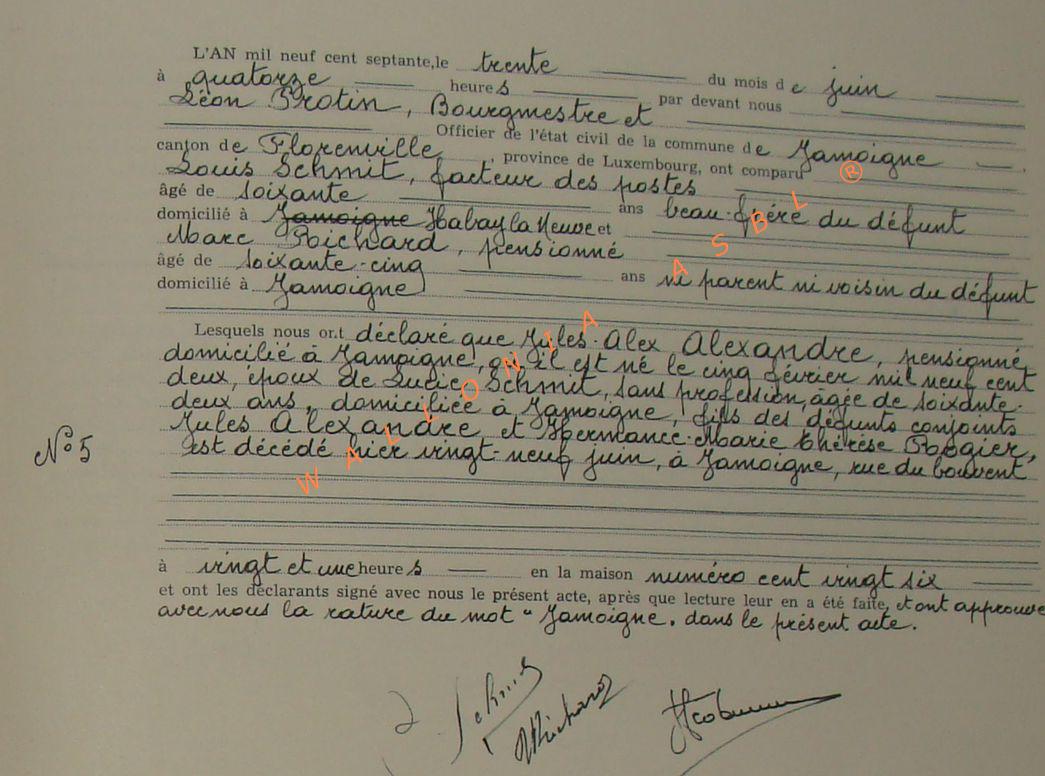 L'AN mil neuf cent septante, le trente du mois de juin
à quatorze heures par devant nous
Léon Protin, Bourgmestre et
Officier de l'état civil de la commune de Jamoigne
canton de Florenville, province de Luxembourg, ont comparu
Louis Schmit, facteur des postes
âgé de soixante ans beau-frère du défunt
domicilié à Jamoigne Habay la Neuve et
Marc Richard, pensionné
âgé de soixante-cinq ans ni parent ni voisin du défunt
domicilié à Jamoigne
Lesquels nous ont déclaré que Jules-Alex Alexandre, pensionné,
domicilié à Jamoigne, où il est né le cinq février mil neuf cent
deux, époux de Lucie Schmit, sans profession, agée de soixante-
deux ans, domiciliée à Jamoigne, fils des défunts conjoints
Jules Alexandre et Hermance-Marie Thérèse Rogier,
N° 5
est décédé hier vingt-neuf juin, à Jamoigne, rue du Couvent
à vingt et une heures en la maison numéro cent vingt six
et ont les déclarants signé avec nous le présent acte, après que lecture leur en a été faite, et ont approuvé
avec nous la rature du mot "Jamoigne" dans le présent acte.
Schmit
Richard
WALLONIA ASBL ®